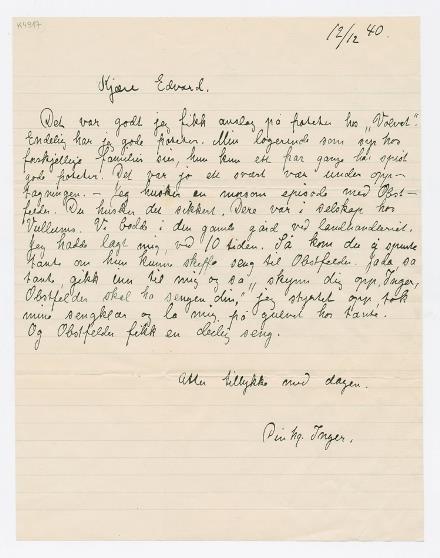 K4917
12/12 40.
Kjære Edvard.
Det var godt jeg fikk anslag på poteter hos
Endelig har jeg gode poteter. Min logerende som syr hos
forskjellige familier sier, hun kun ett par ganger har spist
gode poteter. Det var jo ett svært vær under opp-
tagningen. – Jeg husker en morsom episode med Obst-
felder. Du husker det sikkert. Dere var i selskap hos
Vullums. Vi bodde i den gamle gård ved landhandleriet.
Jeg hadde lagt mig, ved 10 tiden. Så kom du å spurte
tante om hun kunne skaffe seng til Obstfelder. Jada sa
tante, gikk inn til mig og sa, "skynn dig opp, Inger,
Obstfelder skal ha sengen din," jeg styrtet opp, tok
mine sengklær og la mig på gulvet hos tante.
Og Obstfelder fikk en deilig seng.
Atter tillykke med dagen.
Din hg. Inger.